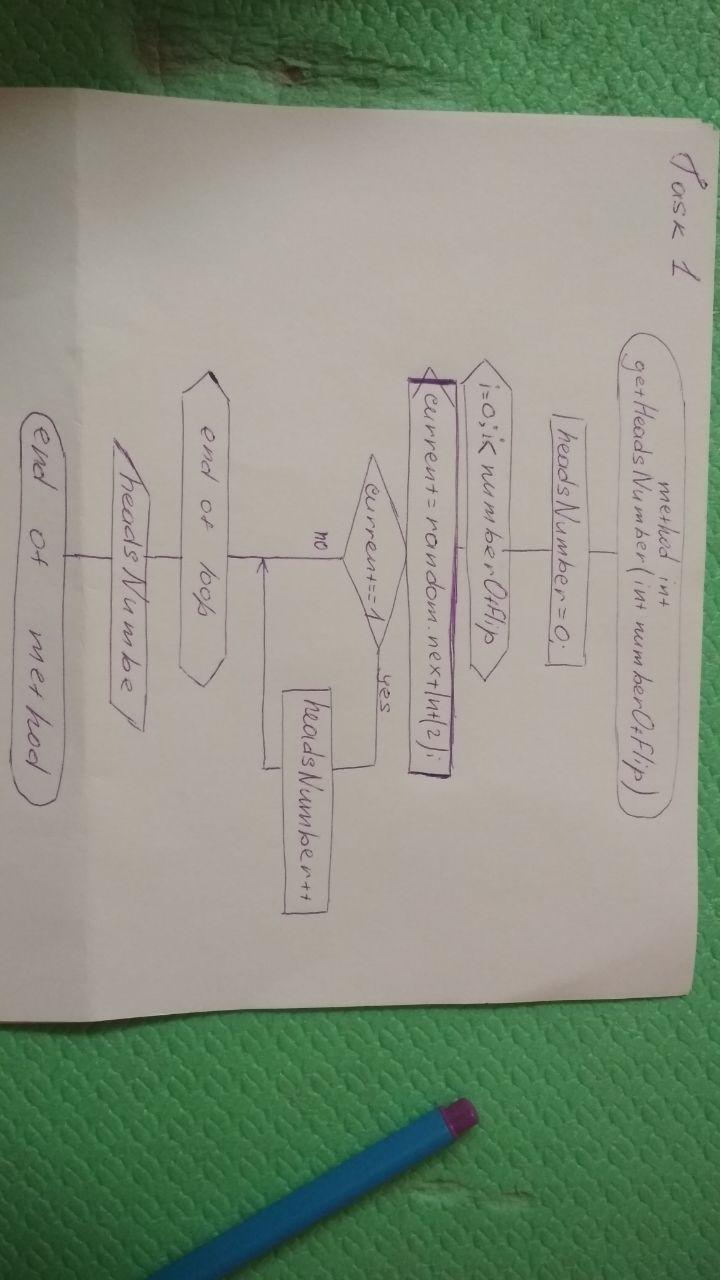 Task 1
method int
getHeadsNumber(int numberOfFlip)
headsNumber=0;
i=0; i< numberOfFlip
current=random.nextInt(2);
current==1
yes
no
headsNumber++
end of loop
headsNumbe
end of method